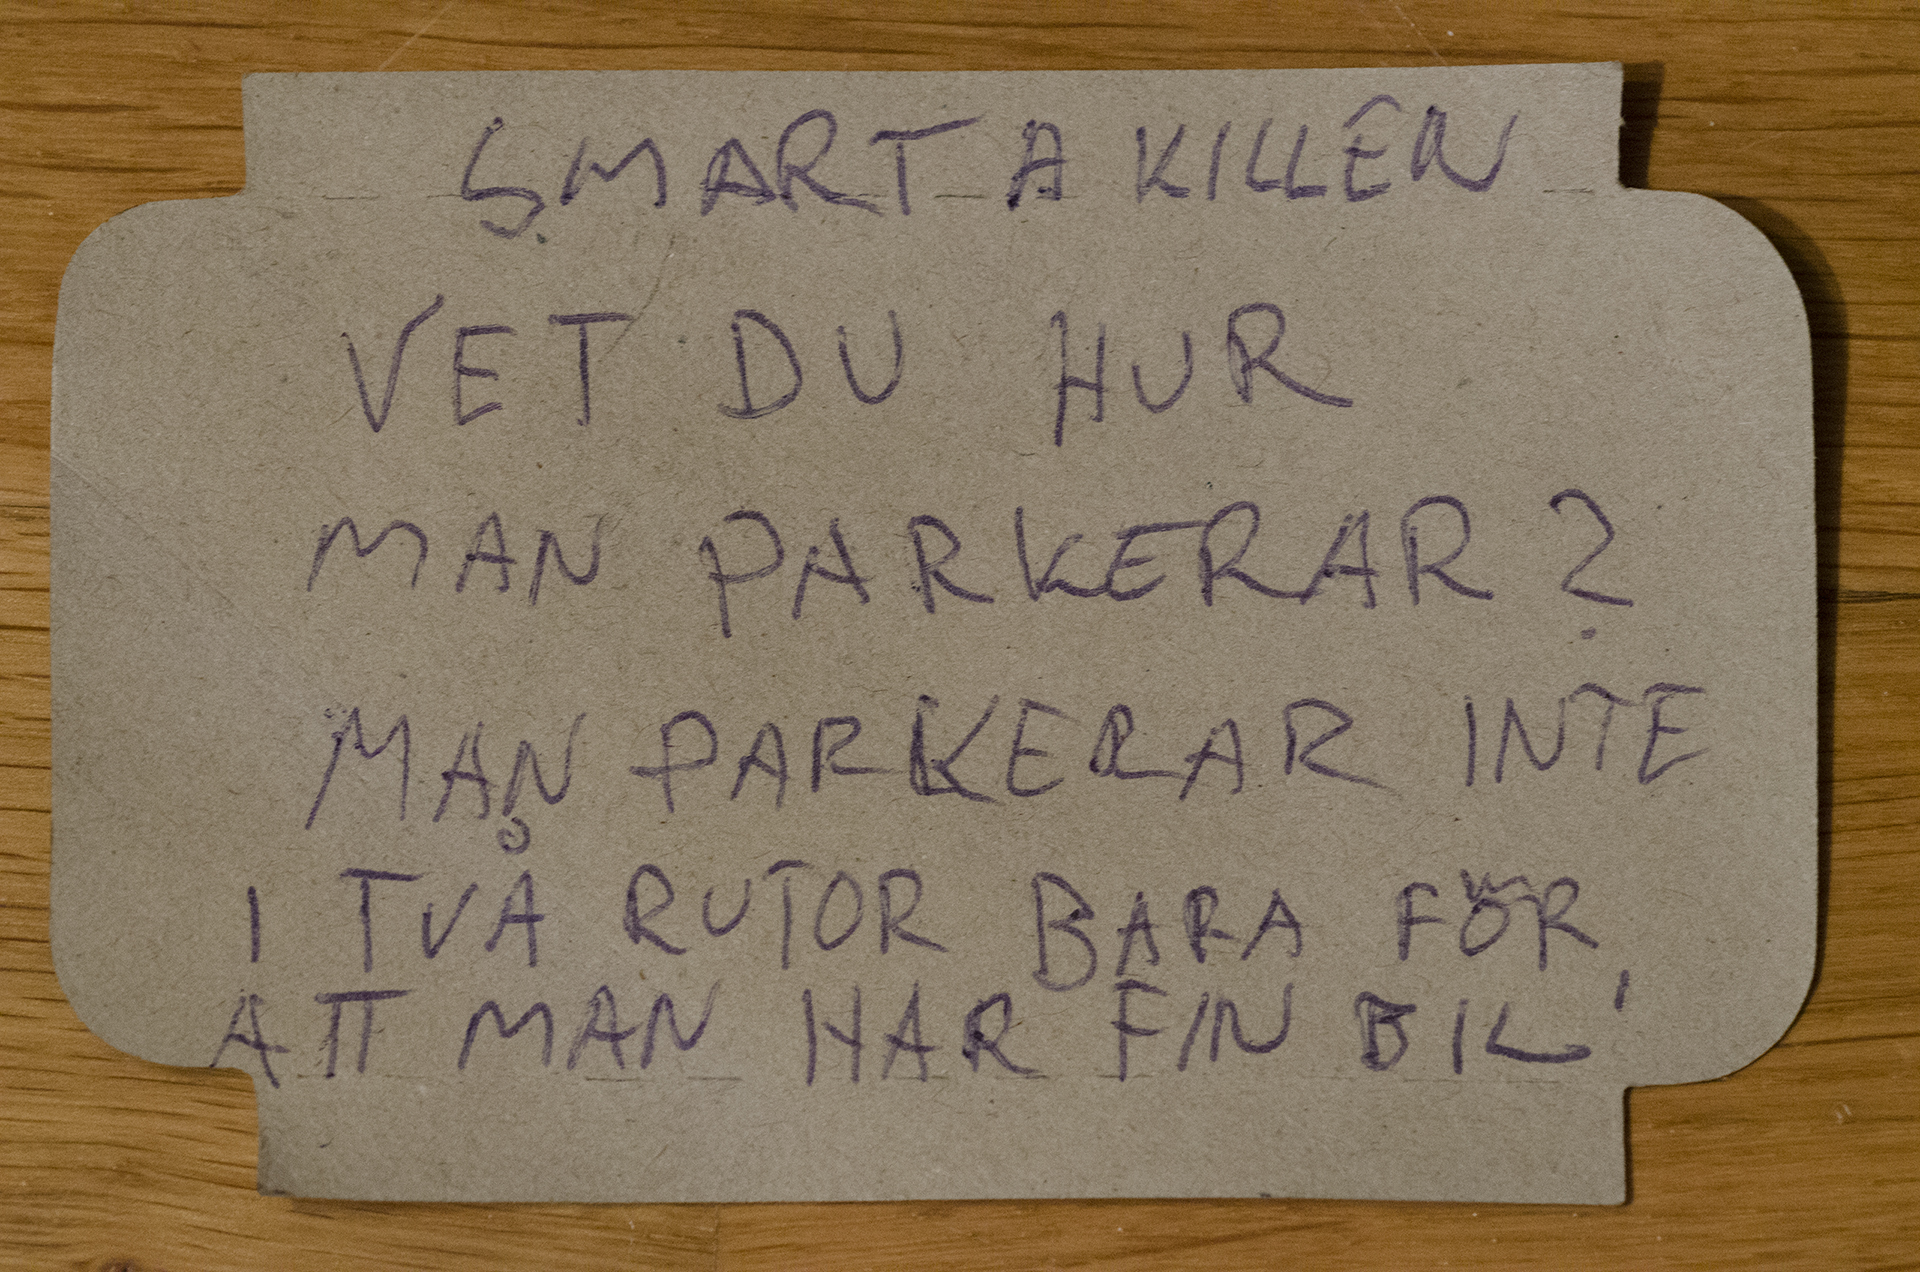 SMARTA KILLEN
VET DU HUR
MAN PARKERAR?
MAN PARKERAR INTE
I TVÅ RUTOR BARA FÖR
ATT MAN HAR FIN BIL!